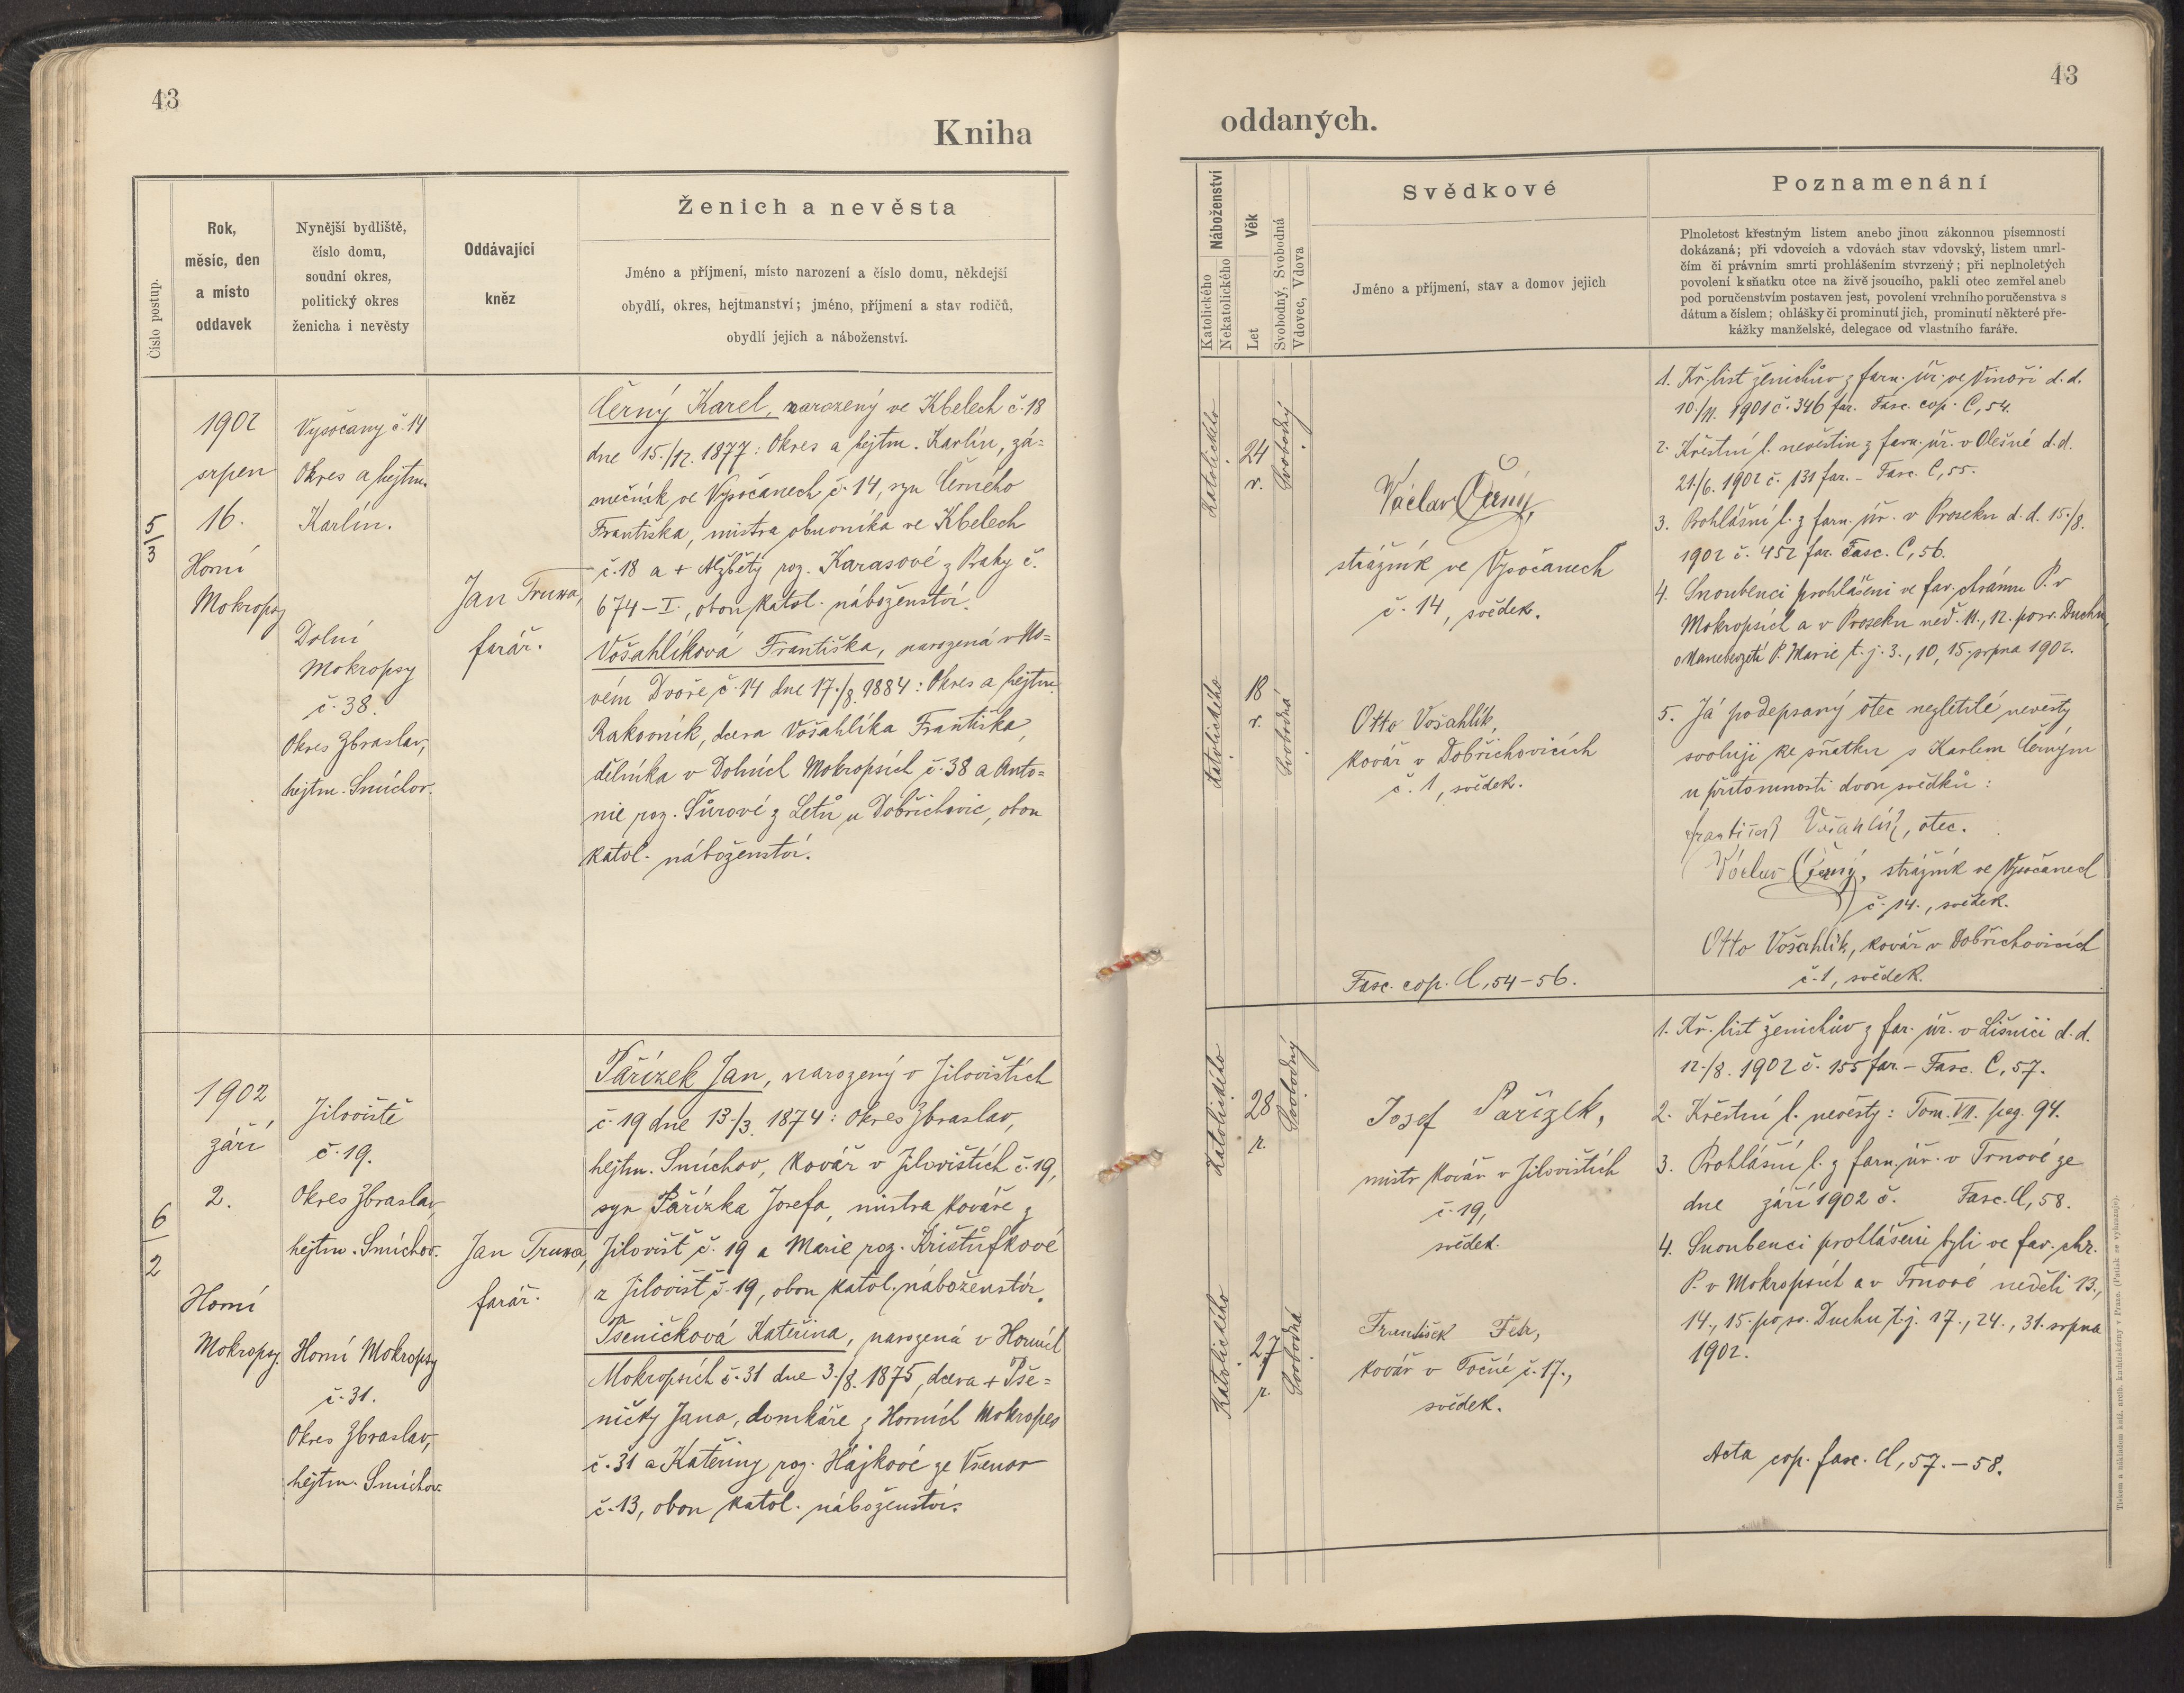 43
Kniha
Číslo postup.
Rok,
měsíc, den
a místo
oddavek
Nynější bydliště,
číslo domu,
soudní okres,
politický okres
ženicha i nevěsty
Oddávající
kněz
Ženich a nevěsta
Jméno a příjmení, místo narození a číslo domu, někdejší
obydlí, okres, hejtmanství; jméno, příjmení a stav rodičů,
obydlí jejich a náboženství.
5
3
1902
srpen
16.
Horní
Mokropsy
Vysočany č. 14
Okres a hejtm.
Karlín.
Dolní
Mokropsy
č. 38.
Okres Zbraslav,
hejtm. Smíchov.
Jan Truxa,
farář.
Černý Karel, narozený ve Kbelech č. 18
dne 15./12. 1877: Okres a hejtm. Karlín, zá-
mečník ve Vysočanech č. 14, syn Černého
Františka, mistra obuvníka ve Kbelech
č. 18 a + Alžběty roz. Karasové z Prahy č.
674–I., obou katol. náboženství.
Vošahlíková Františka, narozená v No-
vém Dvoře č. 14 dne 17./8. 1884: Okres a hejtm.
Rakovník, dcera Vošahlíka Františka,
dělníka v Dolních Mokropsích č. 38 a Anto-
nie roz. Šůrové z Letů u Dobřichovic, obou
katol. náboženství.
6
2
1902
září
2.
Horní
Mokropsy.
Jíloviště
č. 19.
Okres Zbraslav,
hejtm. Smíchov.
Horní Mokropsy
č. 31.
Okres Zbraslav,
hejtm. Smíchov.
Jan Truxa,
farář.
Pařízek Jan, narozený v Jílovištích
č. 19 dne 13./3. 1874: Okres Zbraslav,
hejtm. Smíchov, kovář v Jílovištích č. 19,
syn Pařízka Josefa, mistra kováře z
Jílovišť č. 19 a Marie roz. Krištůfkové
z Jílovišť č. 19, obou katol. náboženství.
Pšeničková Kateřina, narozená v Horních
Mokropsích č. 31 dne 3./8. 1875, dcera + Pše-
ničky Jana, domkáře z Horních Mokropes
č. 31 a Kateřiny roz. Hájkové ze Všenor
č. 13, obou katol. náboženství.
43
oddaných.
Náboženství
Katolického
Nekatolického
Věk
Let
Svobodný, Svobodná
Vdovec, Vdova
Svědkové
Jméno a příjmení, stav a domov jejich
Poznamenání
Plnoletost křestným listem anebo jinou zákonnou písemností
dokázaná; při vdovcích a vdovách stav vdovský, listem umrl-
čím či právním smrti prohlášením stvrzený; při neplnoletých
povolení k sňatku otce na živě jsoucího, pakli otec zemřel aneb
pod poručenstvím postaven jest, povolení vrchního poručenstva s
dátum a číslem; ohlášky či prominutí jich, prominutí některé pře-
kážky manželské, delegace od vlastního faráře.
Katolického
24
r.
Svobodný
Václav Černý,
strážník ve Vysočanech
č. 14, svědek.
Katolického
18
r.
Svobodná
Otto Vošahlík,
kovář v Dobřichovicích
č. 1, svědek.
Fasc. cop. C, 54–56.
1. Kř. list ženichův z farn. úř. ve Vinoři d. d.
10./11. 1901 č. 346 far. Fasc. cop. C, 54.
2. Křestní l. nevěstin z farn. úř. v Olešné d. d.
21./6. 1902 č. 131 far. – Fasc. C, 55.
3. Prohlášní l. z farn. úř. v Proseku d. d. 15./8.
1902 č. 452 far. Fasc. C, 56.
4. Snoubenci prohlášeni ve far. chrámu P. v
Mokropsích a v Proseku neď. 11., 12. po sv. Duchu,
o Nanebevzetí P. Marie t. j. 3., 10, 15. srpna 1902.
5. Já podepsaný otec nezletilé nevěsty
svoluji ke sňatku s Karlem Černým
u přítomnosti dvou svědků:
František Vošahlík, otec.
Václav Černý, strážník ve Vysočanech
č. 14., svědek.
Otto Vošahlík, kovář v Dobřichovicích
č. 1, svědek.
Katolického
28
r.
Svobodný
Josef Pařízek,
mistr kovář v Jílovištích
č. 19,
svědek.
Katolického
27
r.
Svobodná
František Fehr,
kovář v Točné č. 17.,
svědek.
1. Kř. list ženichův z far. úř. v Líšnici d. d.
12./8. 1902 č. 155 far. – Fasc. C, 57.
2. Křestní l. nevěsty: Tom. VII. pag. 94.
3. Prohlášní l. z farn. úř. v Trnové ze
dne září 1902 č. Fasc. C, 58.
4. Snoubenci prohlášeni byli ve far. chr.
P. v Mokropsích a v Trnové neděli 13.,
14., 15. po sv. Duchu t. j. 17., 24., 31. srpna
1902.
Acta cop. fasc. C, 57.–58.
Tiskem a nákladem kníž. arcib. knihtiskárny v Praze. (Patisk se vyhrazuje).